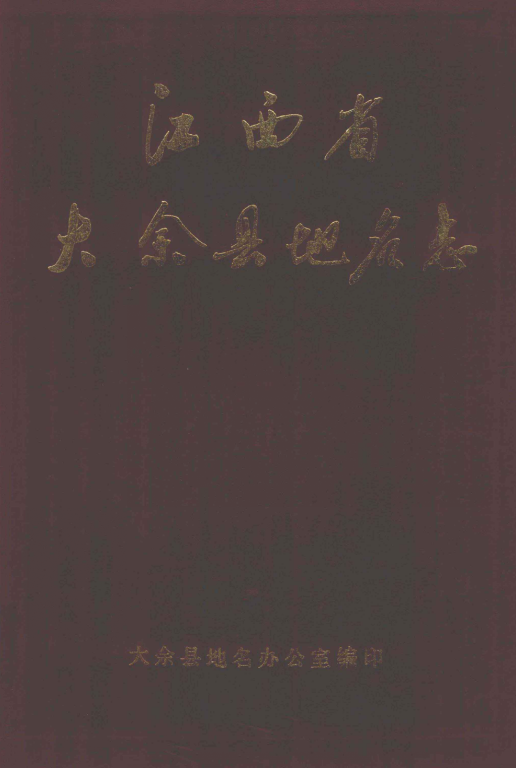 江西省
大余县地名志
大余县地名办公室编印